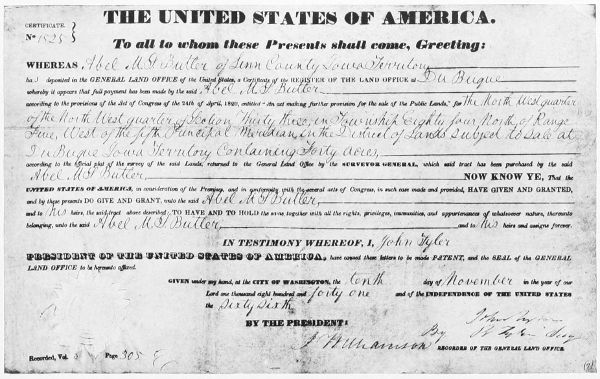 THE UNITED STATES OF AMERICA.
CERTIFICATE.
No 1525
To all to whom these Presents shall come, Greeting:
WHEREAS Abel M S Butler of Linn County Iowa Territory
has deposited in the GENERAL LAND OFFICE of the United States, a Certificate of the REGISTER OF THE LAND OFFICE at Du Buque
whereby it appears that full payment has been made by the said Abel M S Butler
according to the provisions of the Act of Congress of the 24th of April, 1820, entitled "An act making further provision for the sale of the Public Lands," for the North West quarter
of the North West quarter of Section Thirty three, in Township Eighty four North, of Range
Five, West of the fifth Principal Meridian, in the District of Lands subject to sale at
Du Buque Iowa Territory Containing Forty acres,
according to the official plat of the survey of the said Lands, returned to the General Land Office by the SURVEYOR GENERAL, which said tract has been purchased by the said
Abel M S Butler, NOW KNOW YE, That the
UNITED STATES OF AMERICA, in consideration of the Premises, and in conformity with the several acts of Congress, in such case made and provided, HAVE GIVEN AND GRANTED,
and by these presents DO GIVE AND GRANT, unto the said Abel M S Butler,
and to his heirs, the said tract above described; TO HAVE AND TO HOLD the same, together with all the rights, privileges, immunities, and appurtenances of whatsoever nature, thereunto
belonging, unto the said Abel M S Butler, and to his heirs and assigns forever.
IN TESTIMONY WHEREOF, I, John Tyler
PRESIDENT OF THE UNITED STATES OF AMERICA, have caused these letters to be made PATENT, and the SEAL of the GENERAL
LAND OFFICE to be hereunto affixed.
GIVEN under my hand, at the CITY OF WASHINGTON, the tenth day of November in the year of our
Lord one thousand eight hundred and forty one and of the INDEPENDENCE OF THE UNITED STATES
the Sixty Sixth
BY THE PRESIDENT: John Tyler
By R Tyler Secy
J Williamson RECORDER OF THE GENERAL LAND OFFICE.
Recorded, Vol. 5 Page 305